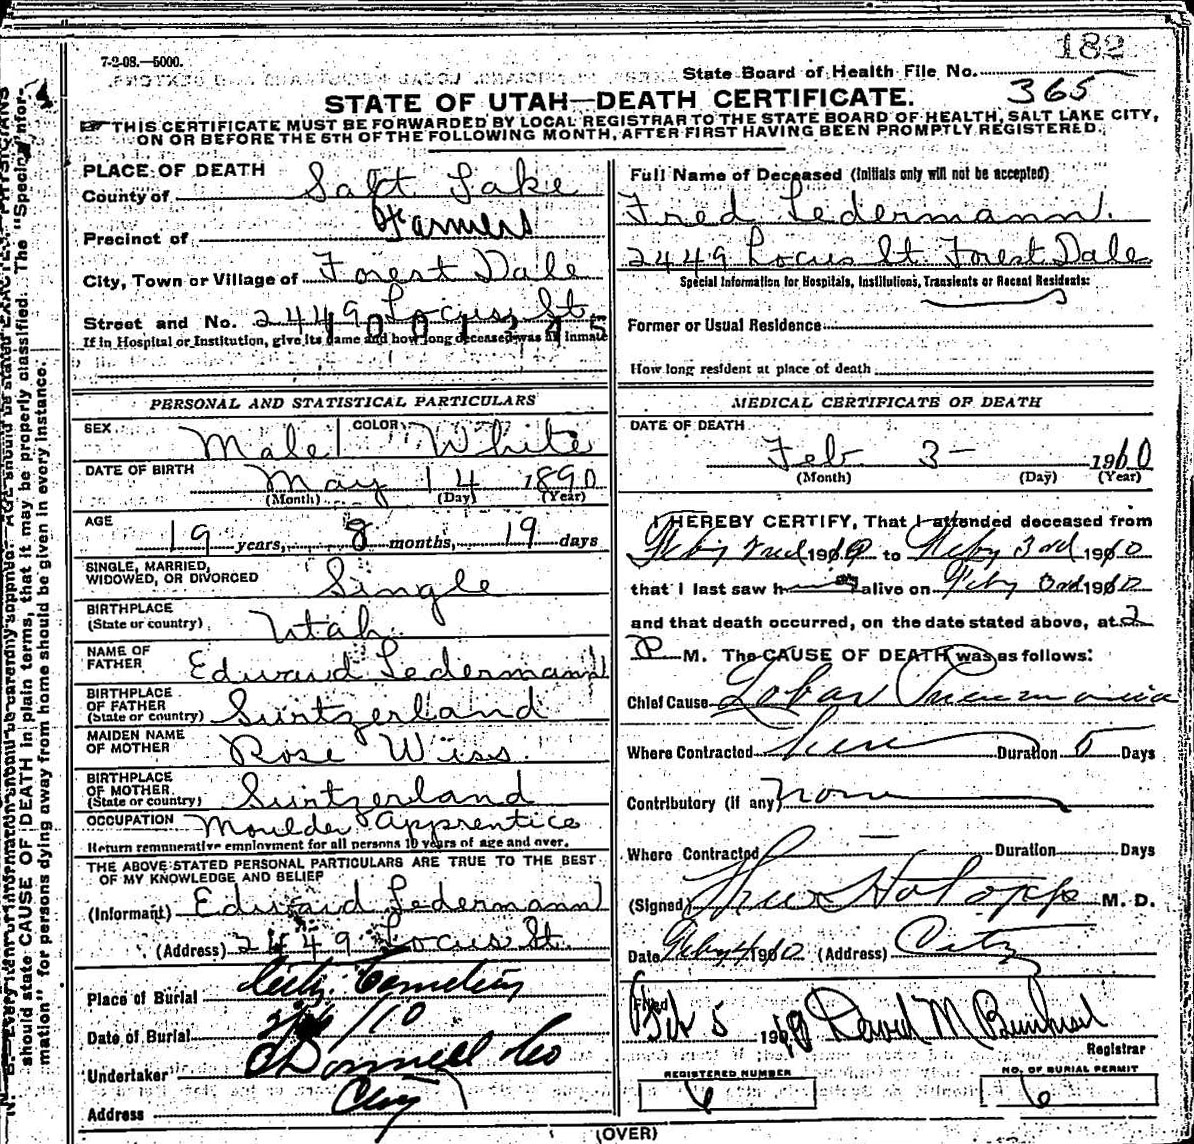 182
7-2-08.—5000.
State Board of Health File No. 365
STATE OF UTAH—DEATH CERTIFICATE.
THIS CERTIFICATE MUST BE FORWARDED BY LOCAL REGISTRAR TO THE STATE BOARD OF HEALTH, SALT LAKE CITY,
ON OR BEFORE THE 5TH OF THE FOLLOWING MONTH, AFTER FIRST HAVING BEEN PROMPTLY REGISTERED.
PLACE OF DEATH
County of Salt Lake
Precinct of Farmers
City, Town or Village of Forest Dale
Street and No. 2449 Locus St.
1001245
If in Hospital or Institution, give its name and how long deceased was an inmate
PERSONAL AND STATISTICAL PARTICULARS
SEX Male COLOR White
DATE OF BIRTH May 14 1890
(Month) (Day) (Year)
AGE
19 years, 8 months, 19 days
SINGLE, MARRIED,
WIDOWED, OR DIVORCED Single
BIRTHPLACE
(State or country) Utah
NAME OF
FATHER Edward Ledermann
BIRTHPLACE
OF FATHER
(State or country) Surtzerland
MAIDEN NAME
OF MOTHER Rose Wiss
BIRTHPLACE
OF MOTHER
(State or country) Surtzerland
OCCUPATION Moulder Apprentice
Return remunerative employment for all persons 10 years of age and over.
THE ABOVE STATED PERSONAL PARTICULARS ARE TRUE TO THE BEST
OF MY KNOWLEDGE AND BELIEF
(Informant) Edward Ledermann
(Address) 2449 Locus St.
Place of Burial City Cemetery
Date of Burial 2/6/10
Undertaker O'Donnell & Co
Address City
Full Name of Deceased (Initials only will not be accepted)
Fred Ledermann
2449 Locus St. Forest Dale
Special Information for Hospitals, Institutions, Transients or Recent Residents:
Former or Usual Residence
How long resident at place of death
MEDICAL CERTIFICATE OF DEATH
DATE OF DEATH
Feb 3- 1910
(Month) (Day) (Year)
I HEREBY CERTIFY, That I attended deceased from
1910 to Feby 3rd 1910
that I last saw him alive on Feby 3rd 1910
and that death occurred, on the date stated above, at 2
P M. The CAUSE OF DEATH was as follows:
Chief Cause Lobar Pneumonia
Where Contracted here Duration 5 Days
Contributory (if any) none
Where Contracted Duration Days
(Signed) M. D.
Date Feby 4 1910 (Address) City
Filed
Feb 5 1910 David M
Registrar
REGISTERED NUMBER
6
NO. OF BURIAL PERMIT
6
(OVER)
should state CAUSE OF DEATH in plain terms, that it may be properly classified. The "Special Infor-
mation" for persons dying away from home should be given in every instance.